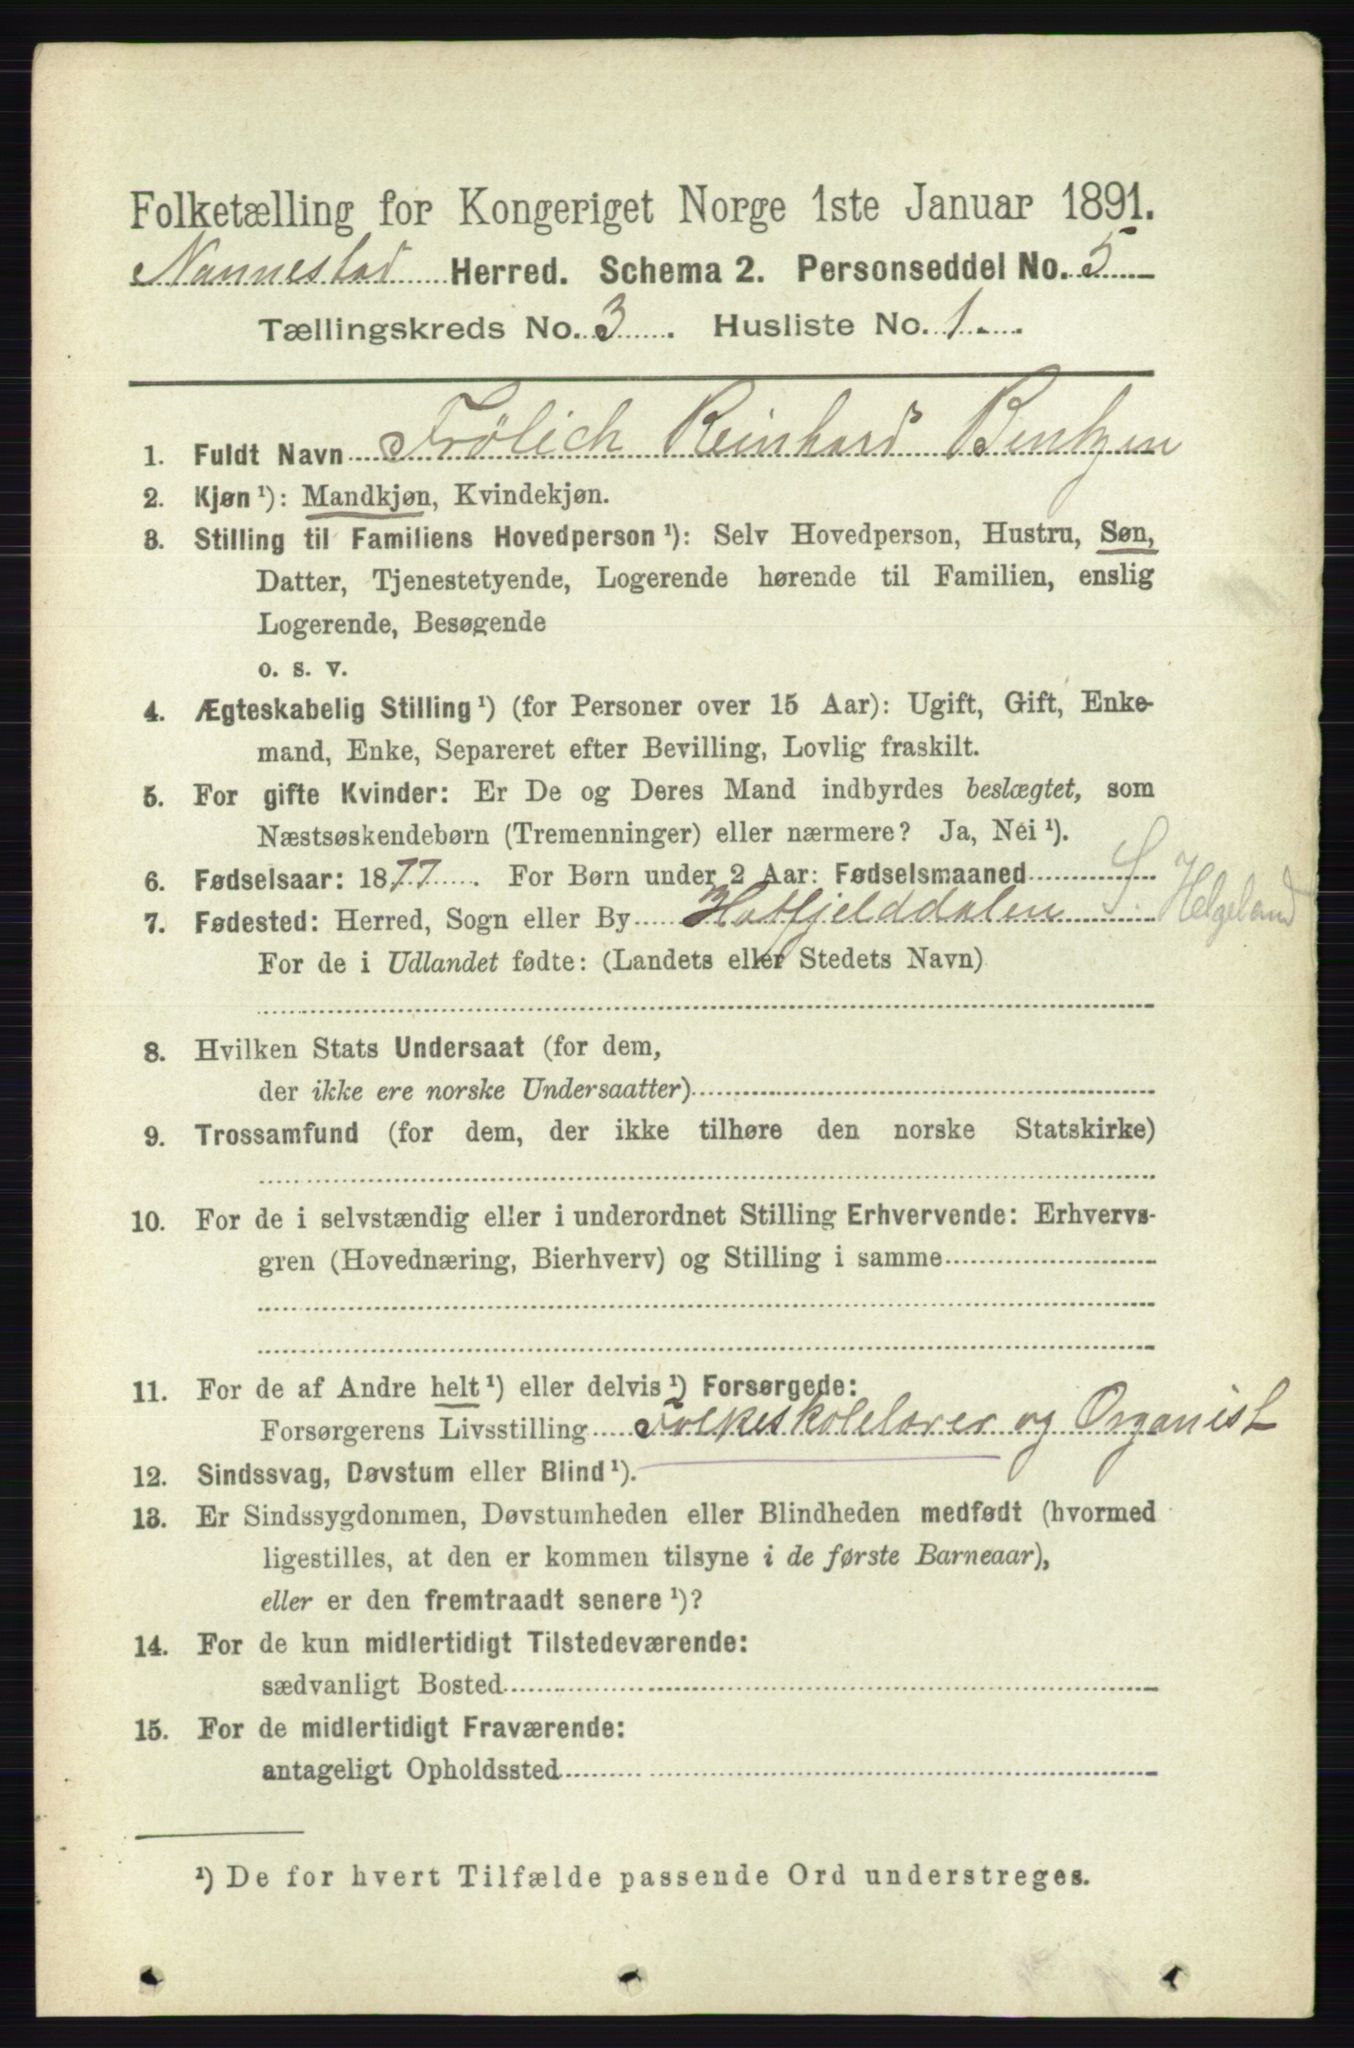 Folketælling for Kongeriget Norge 1ste Januar 1891.
Nannestad Herred. Schema 2. Personseddel No. 5
Tællingskreds No. 3. Husliste No. 1.
1. Fuldt Navn Frölich Reinhard Bentzen
2. Kjøn ¹): Mandkjøn, Kvindekjøn.
3. Stilling til Familiens Hovedperson ¹): Selv Hovedperson, Hustru, Søn,
Datter, Tjenestetyende, Logerende hørende til Familien, enslig
Logerende, Besøgende
o. s. v.
4. Ægteskabelig Stilling ¹) (for Personer over 15 Aar): Ugift, Gift, Enke-
mand, Enke, Separeret efter Bevilling, Lovlig fraskilt.
5. For gifte Kvinder: Er De og Deres Mand indbyrdes beslægtet, som
Næstsøskendebørn (Tremenninger) eller nærmere? Ja, Nei ¹).
6. Fødselsaar: 1877. For Børn under 2 Aar: Fødselsmaaned
7. Fødested: Herred, Sogn eller By Hatfjelddalen S. Helgeland
For de i Udlandet fødte: (Landets eller Stedets Navn)
8. Hvilken Stats Undersaat (for dem,
der ikke ere norske Undersaatter)
9. Trossamfund (for dem, der ikke tilhøre den norske Statskirke)
10. For de i selvstændig eller i underordnet Stilling Erhvervende: Erhvervs-
gren (Hovednæring, Bierhverv) og Stilling i samme
11. For de af Andre helt ¹) eller delvis ¹) Forsørgede:
Forsørgerens Livsstilling Folkeskolelærer og Organist
12. Sindssvag, Døvstum eller Blind ¹).
13. Er Sindssygdommen, Døvstumheden eller Blindheden medfødt (hvormed
ligestilles, at den er kommen tilsyne i de første Barneaar),
eller er den fremtraadt senere ¹)?
14. For de kun midlertidigt Tilstedeværende:
sædvanligt Bosted
15. For de midlertidigt Fraværende:
antageligt Opholdssted
¹) De for hvert Tilfælde passende Ord understreges.